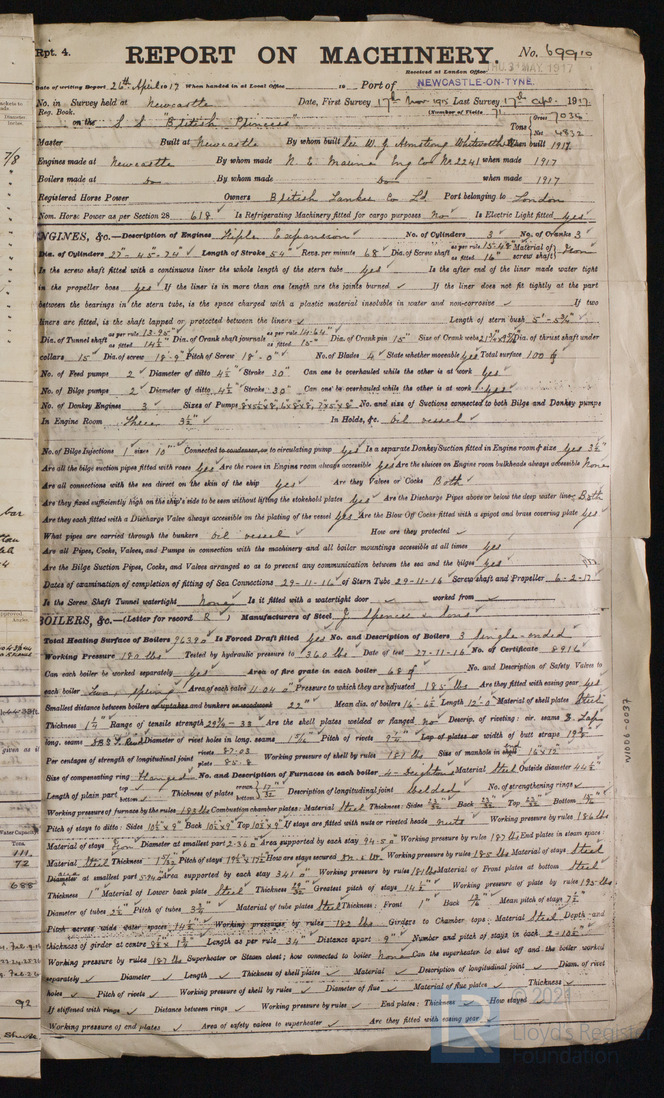 Rpt. 4.
REPORT ON MACHINERY. No. 69910
Received at London Office THU. 3 MAY. 1917
Date of writing Report 26th April 1917 When handed in at Local Office 10 Port of NEWCASTLE-ON-TYNE.
No. in Survey held at Newcastle Date, First Survey 17th Nov 1915 Last Survey 17th Apl. 1917
Reg. Book. (Number of Visits 71
on the S S "British Princess" Tons { Gross 7036 Net 4832
Master Built at Newcastle By whom built Sir W. G. Armstrong Whitworth When built 1917
Engines made at Newcastle By whom made N. E. Marine Eng Co No 2241 when made 1917
Boilers made at Do By whom made Do when made 1917
Registered Horse Power Owners British Tanker Co Ld Port belonging to London
Nom. Horse Power as per Section 28 618 Is Refrigerating Machinery fitted for cargo purposes No Is Electric Light fitted yes
ENGINES, &c.—Description of Engines Triple Expansion No. of Cylinders 3 No. of Cranks 3
Dia. of Cylinders 27"-45"-74" Length of Stroke 54" Revs. per minute 68 Dia. of Screw shaft as per rule 15.48" as fitted 16" Material of screw shaft Iron
Is the screw shaft fitted with a continuous liner the whole length of the stern tube yes Is the after end of the liner made water tight
in the propeller boss yes If the liner is in more than one length are the joints burned If the liner does not fit tightly at the part
between the bearings in the stern tube, is the space charged with a plastic material insoluble in water and non-corrosive If two
liners are fitted, is the shaft lapped or protected between the liners Length of stern bush 5'-5¾"
Dia. of Tunnel shaft as per rule 13.95" as fitted 14½" Dia. of Crank shaft journals as per rule 14.64" as fitted 15" Dia. of Crank pin 15" Size of Crank webs Dia. of thrust shaft under
collars 15 Dia. of screw 18'-9" Pitch of Screw 18'-0" No. of Blades 4 State whether moveable yes Total surface 100 ft
No. of Feed pumps 2 Diameter of ditto 4½" Stroke 30" Can one be overhauled while the other is at work yes
No. of Bilge pumps 2 Diameter of ditto 4½" Stroke 30" Can one be overhauled while the other is at work yes
No. of Donkey Engines 3 Sizes of Pumps No. and size of Suctions connected to both Bilge and Donkey pumps
In Engine Room Three 3½" In Holds, &c. oil vessel
No. of Bilge Injections 1 sizes 10" Connected to condenser, or to circulating pump yes Is a separate Donkey Suction fitted in Engine room & size yes 3½"
Are all the bilge suction pipes fitted with roses yes Are the roses in Engine room always accessible yes Are the sluices on Engine room bulkheads always accessible None
Are all connections with the sea direct on the skin of the ship yes Are they Valves or Cocks Both
Are they fixed sufficiently high on the ship's side to be seen without lifting the stokehold plates yes Are the Discharge Pipes above or below the deep water line Both
Are they each fitted with a Discharge Valve always accessible on the plating of the vessel yes Are the Blow Off Cocks fitted with a spigot and brass covering plate yes
What pipes are carried through the bunkers oil vessel How are they protected
Are all Pipes, Cocks, Valves, and Pumps in connection with the machinery and all boiler mountings accessible at all times yes
Are the Bilge Suction Pipes, Cocks, and Valves arranged so as to prevent any communication between the sea and the bilges yes
Dates of examination of completion of fitting of Sea Connections 29-11-16 of Stern Tube 29-11-16 Screw shaft and Propeller 6-2-17
Is the Screw Shaft Tunnel watertight None Is it fitted with a watertight door worked from
BOILERS, &c.—(Letter for record R) Manufacturers of Steel J Spencer & Sons
Total Heating Surface of Boilers 9639 Is Forced Draft fitted yes No. and Description of Boilers 3 Single-ended
Working Pressure 180 lbs Tested by hydraulic pressure to 360 lbs Date of test 27-11-16 No. of Certificate 8916
Can each boiler be worked separately yes Area of fire grate in each boiler 68 No. and Description of Safety Valves to
each boiler Two, Spring Area of each valve 11.04 Pressure to which they are adjusted 185 lbs Are they fitted with easing gear yes
Smallest distance between boilers or uptakes and bunkers or woodwork 22" Mean dia. of boilers 16'-6½ Length 12'-0" Material of shell plates Steel
Thickness Range of tensile strength 29¾-33 Are the shell plates welded or flanged no Descrip. of riveting: cir. seams
long. seams Diameter of rivet holes in long. seams Pitch of rivets 9½" Lap of plates or width of butt straps
Per centages of strength of longitudinal joint rivets 87.03 plate 85.8 Working pressure of shell by rules 181 lbs Size of manhole in 16x12"
Size of compensating ring flanged No. and Description of Furnaces in each boiler 4-Deighton Material Steel Outside diameter 44½"
Length of plain part top bottom Thickness of plates crown bottom Description of longitudinal joint Welded No. of strengthening rings
Working pressure of furnace by the rules 183 lbs Combustion chamber plates: Material Steel Thickness: Sides Back Top Bottom
Pitch of stays to ditto: Sides 10½x9" Back 10½x9" Top 10½x9" If stays are fitted with nuts or riveted heads nuts Working pressure by rules 186 lbs
Material of stays Iron Diameter at smallest part 2.36 Area supported by each stay 94.5 Working pressure by rules 187 lbs End plates in steam space:
Material Steel Thickness Pitch of stays How are stays secured Working pressure by rules 185 lbs Material of stays Steel
Diameter at smallest part Area supported by each stay 341 Working pressure by rules 181 lbs Material of Front plates at bottom Steel
Thickness 1" Material of Lower back plate Steel Thickness Greatest pitch of stays 14½" Working pressure of plate by rules 195 lbs
Diameter of tubes 2½" Pitch of tubes 3¾" Material of tube plates Steel Thickness: Front 1" Back Mean pitch of stays 7½"
Pitch across wide water spaces 14½" Working pressures by rules 182 lbs Girders to Chamber tops: Material Steel Depth and
thickness of girder at centre Length as per rule 34" Distance apart 9" Number and pitch of stays in each 2-10½"
Working pressure by rules 187 lbs Superheater or Steam chest; how connected to boiler None Can the superheater be shut off and the boiler worked
separately Diameter Length Thickness of shell plates Material Description of longitudinal joint Diam. of rivet
holes Pitch of rivets Working pressure of shell by rules Diameter of flue Material of flue plates Thickness
If stiffened with rings Distance between rings Working pressure by rules End plates: Thickness How stayed
Working pressure of end plates Area of safety valves to superheater Are they fitted with easing gear
N1006-0037
© 2021
Lloyd's Register
Foundation